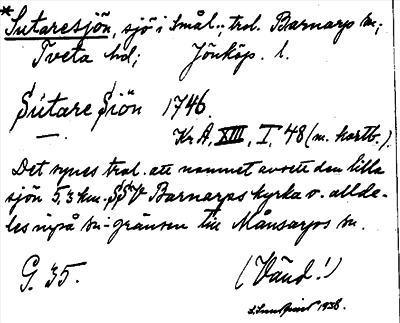 *Sutaresjön, sjö i Smål.; trol. Barnarps sn;
Tveta hd; Jönköp. l.
Sútare Siön 1746.
Kr A, XIII, I, 48 (m. kartb.).
Det synes trol. att namnet avsett den lilla
sjön 5,3 km. SSV Barnarps kyrka o. allde-
les inpå sn-gränsen till Månsarps sn.
G. 35.
(Vänd!)
1936.